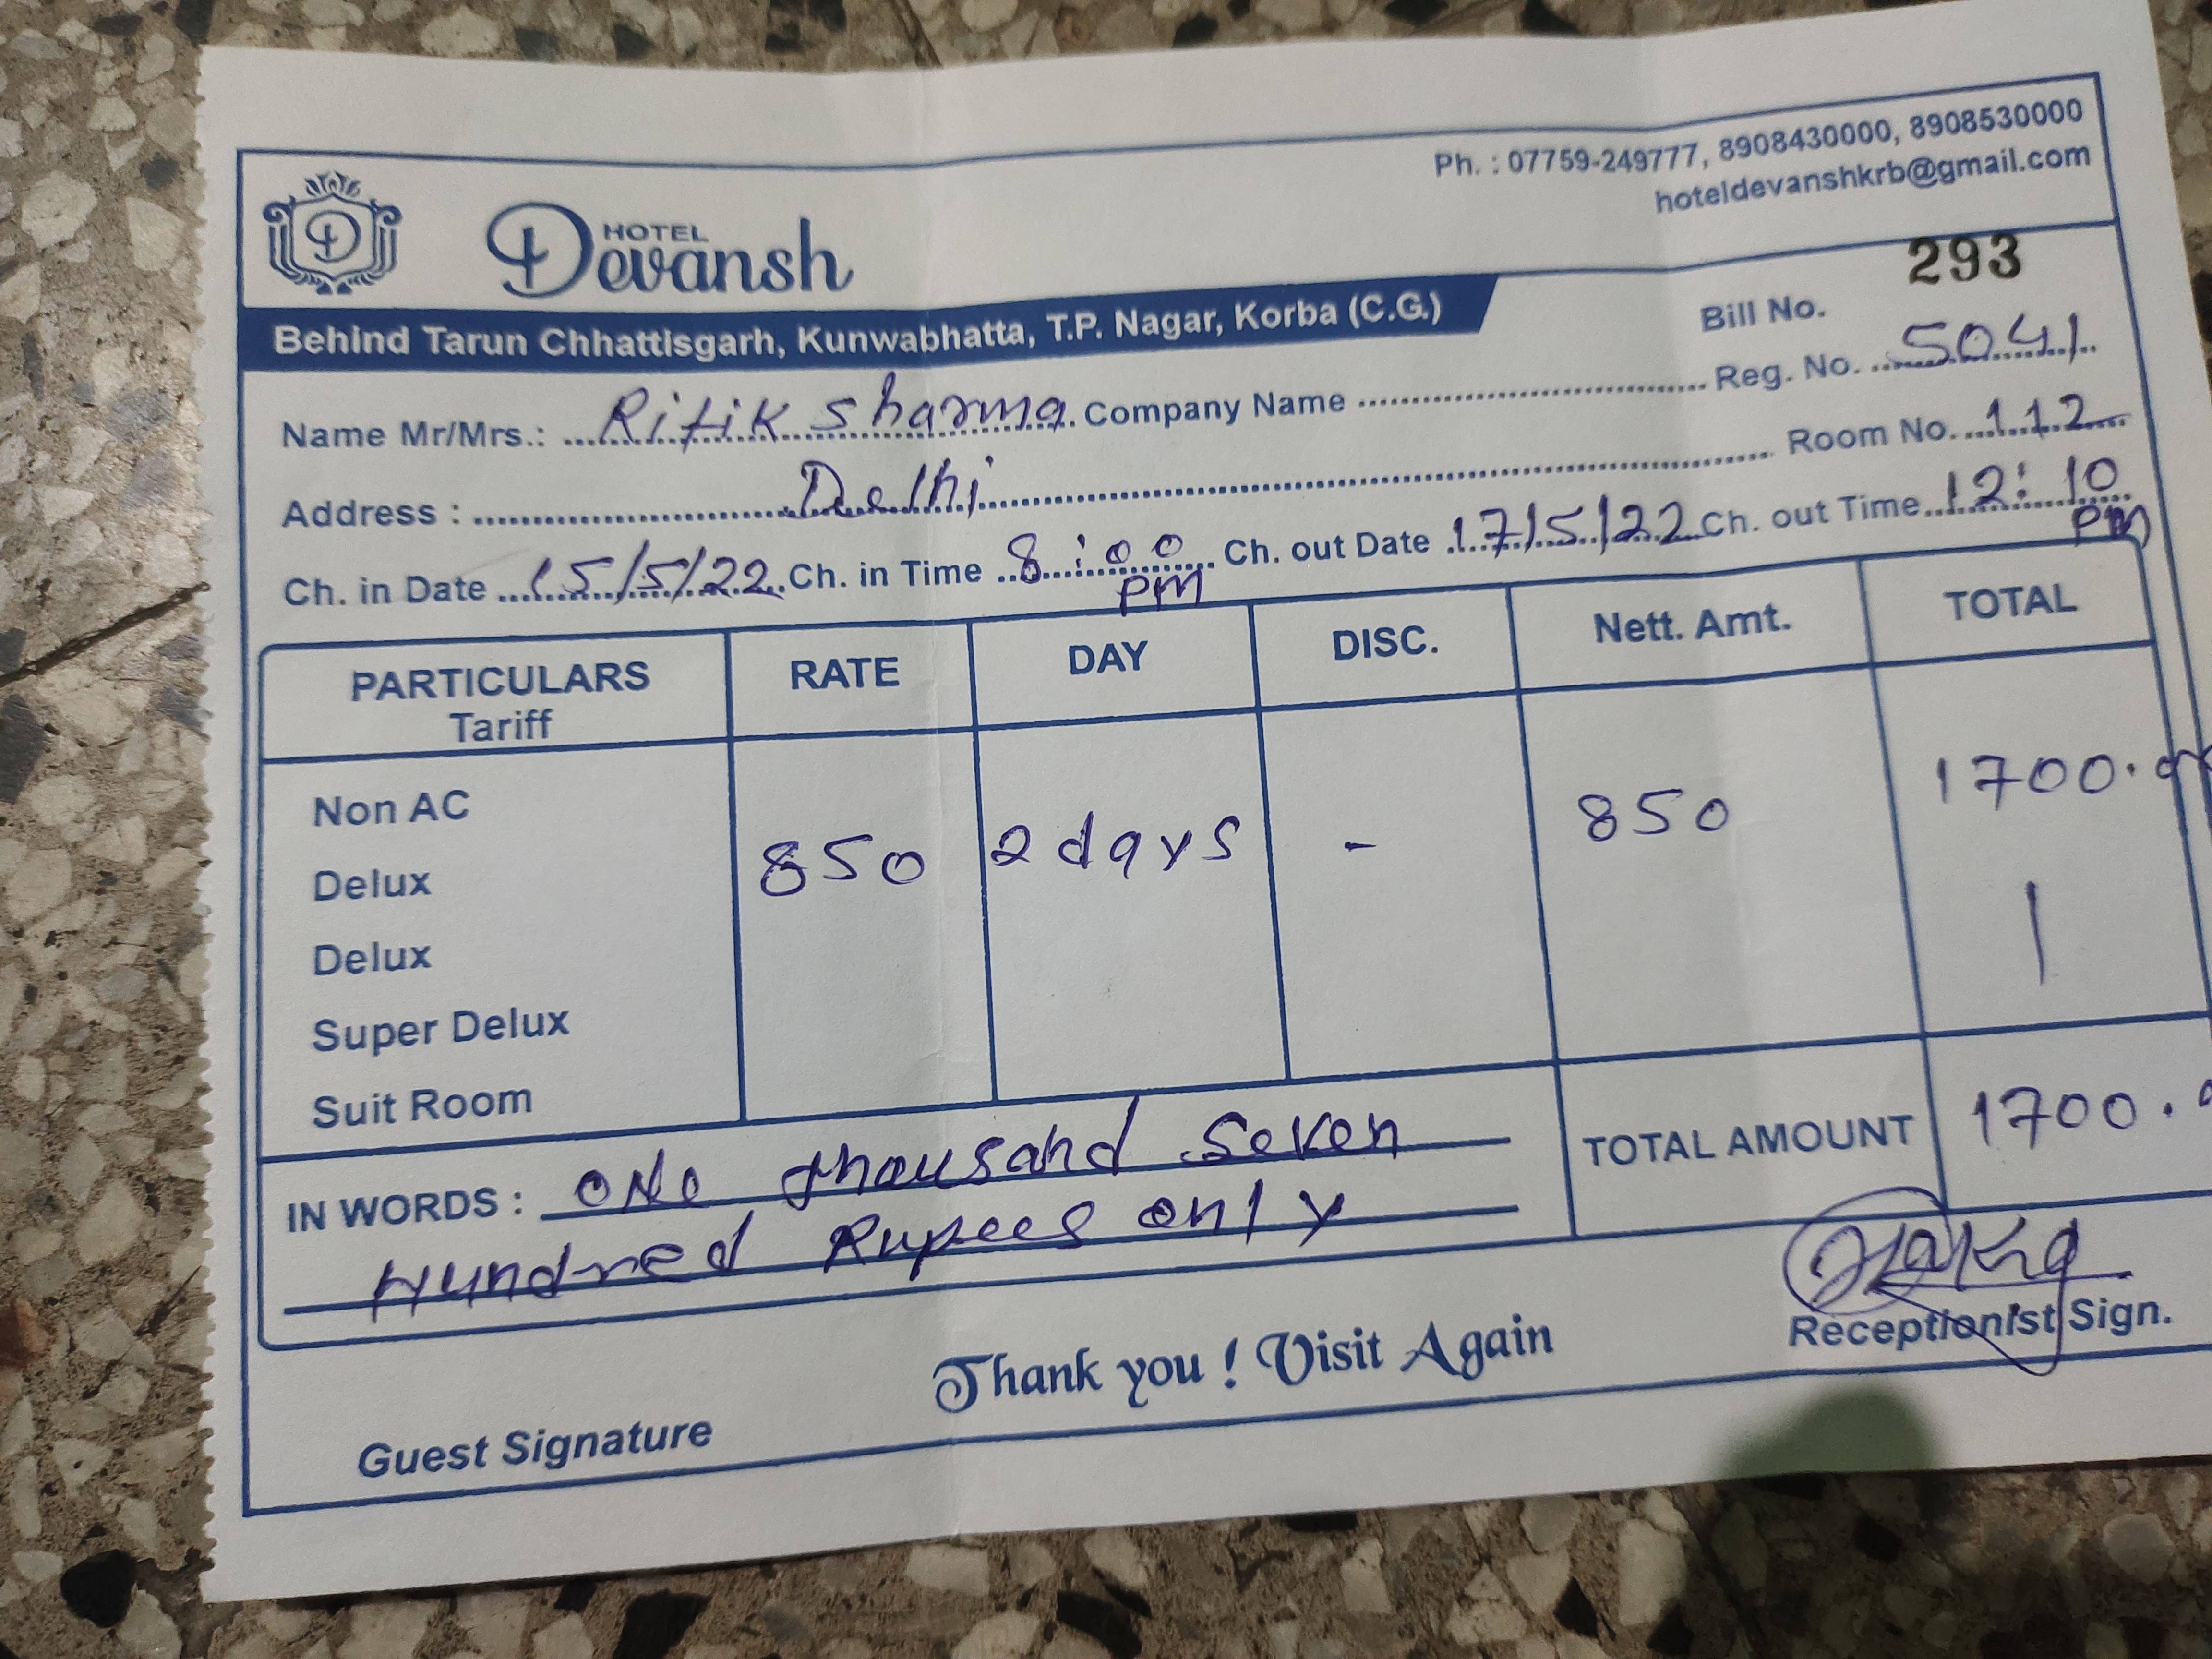 Ph. : 07759-249777, 8908430000, 8908530000
hoteldevanshkrb@gmail.com
D
HOTEL
Devansh
Behind Tarun Chhattisgarh, Kunwabhatta, T.P. Nagar, Korba (C.G.)
Bill No. 293
Name Mr/Mrs.: Ritik Sharma Company Name Reg. No. 5041
Address : Delhi Room No. 112
Ch. in Date 15/5/22 Ch. in Time 8:00 PM Ch. out Date 17/5/22 Ch. out Time 12:10 PM
PARTICULARS RATE DAY DISC. Nett. Amt. TOTAL
Tariff
Non AC 1700.
Delux 850 2 days - 850
Delux
Super Delux
Suit Room
IN WORDS : One thousand Seven TOTAL AMOUNT 1700.
Hundred Rupees only
Receptionist Sign.
Thank you ! Visit Again
Guest Signature